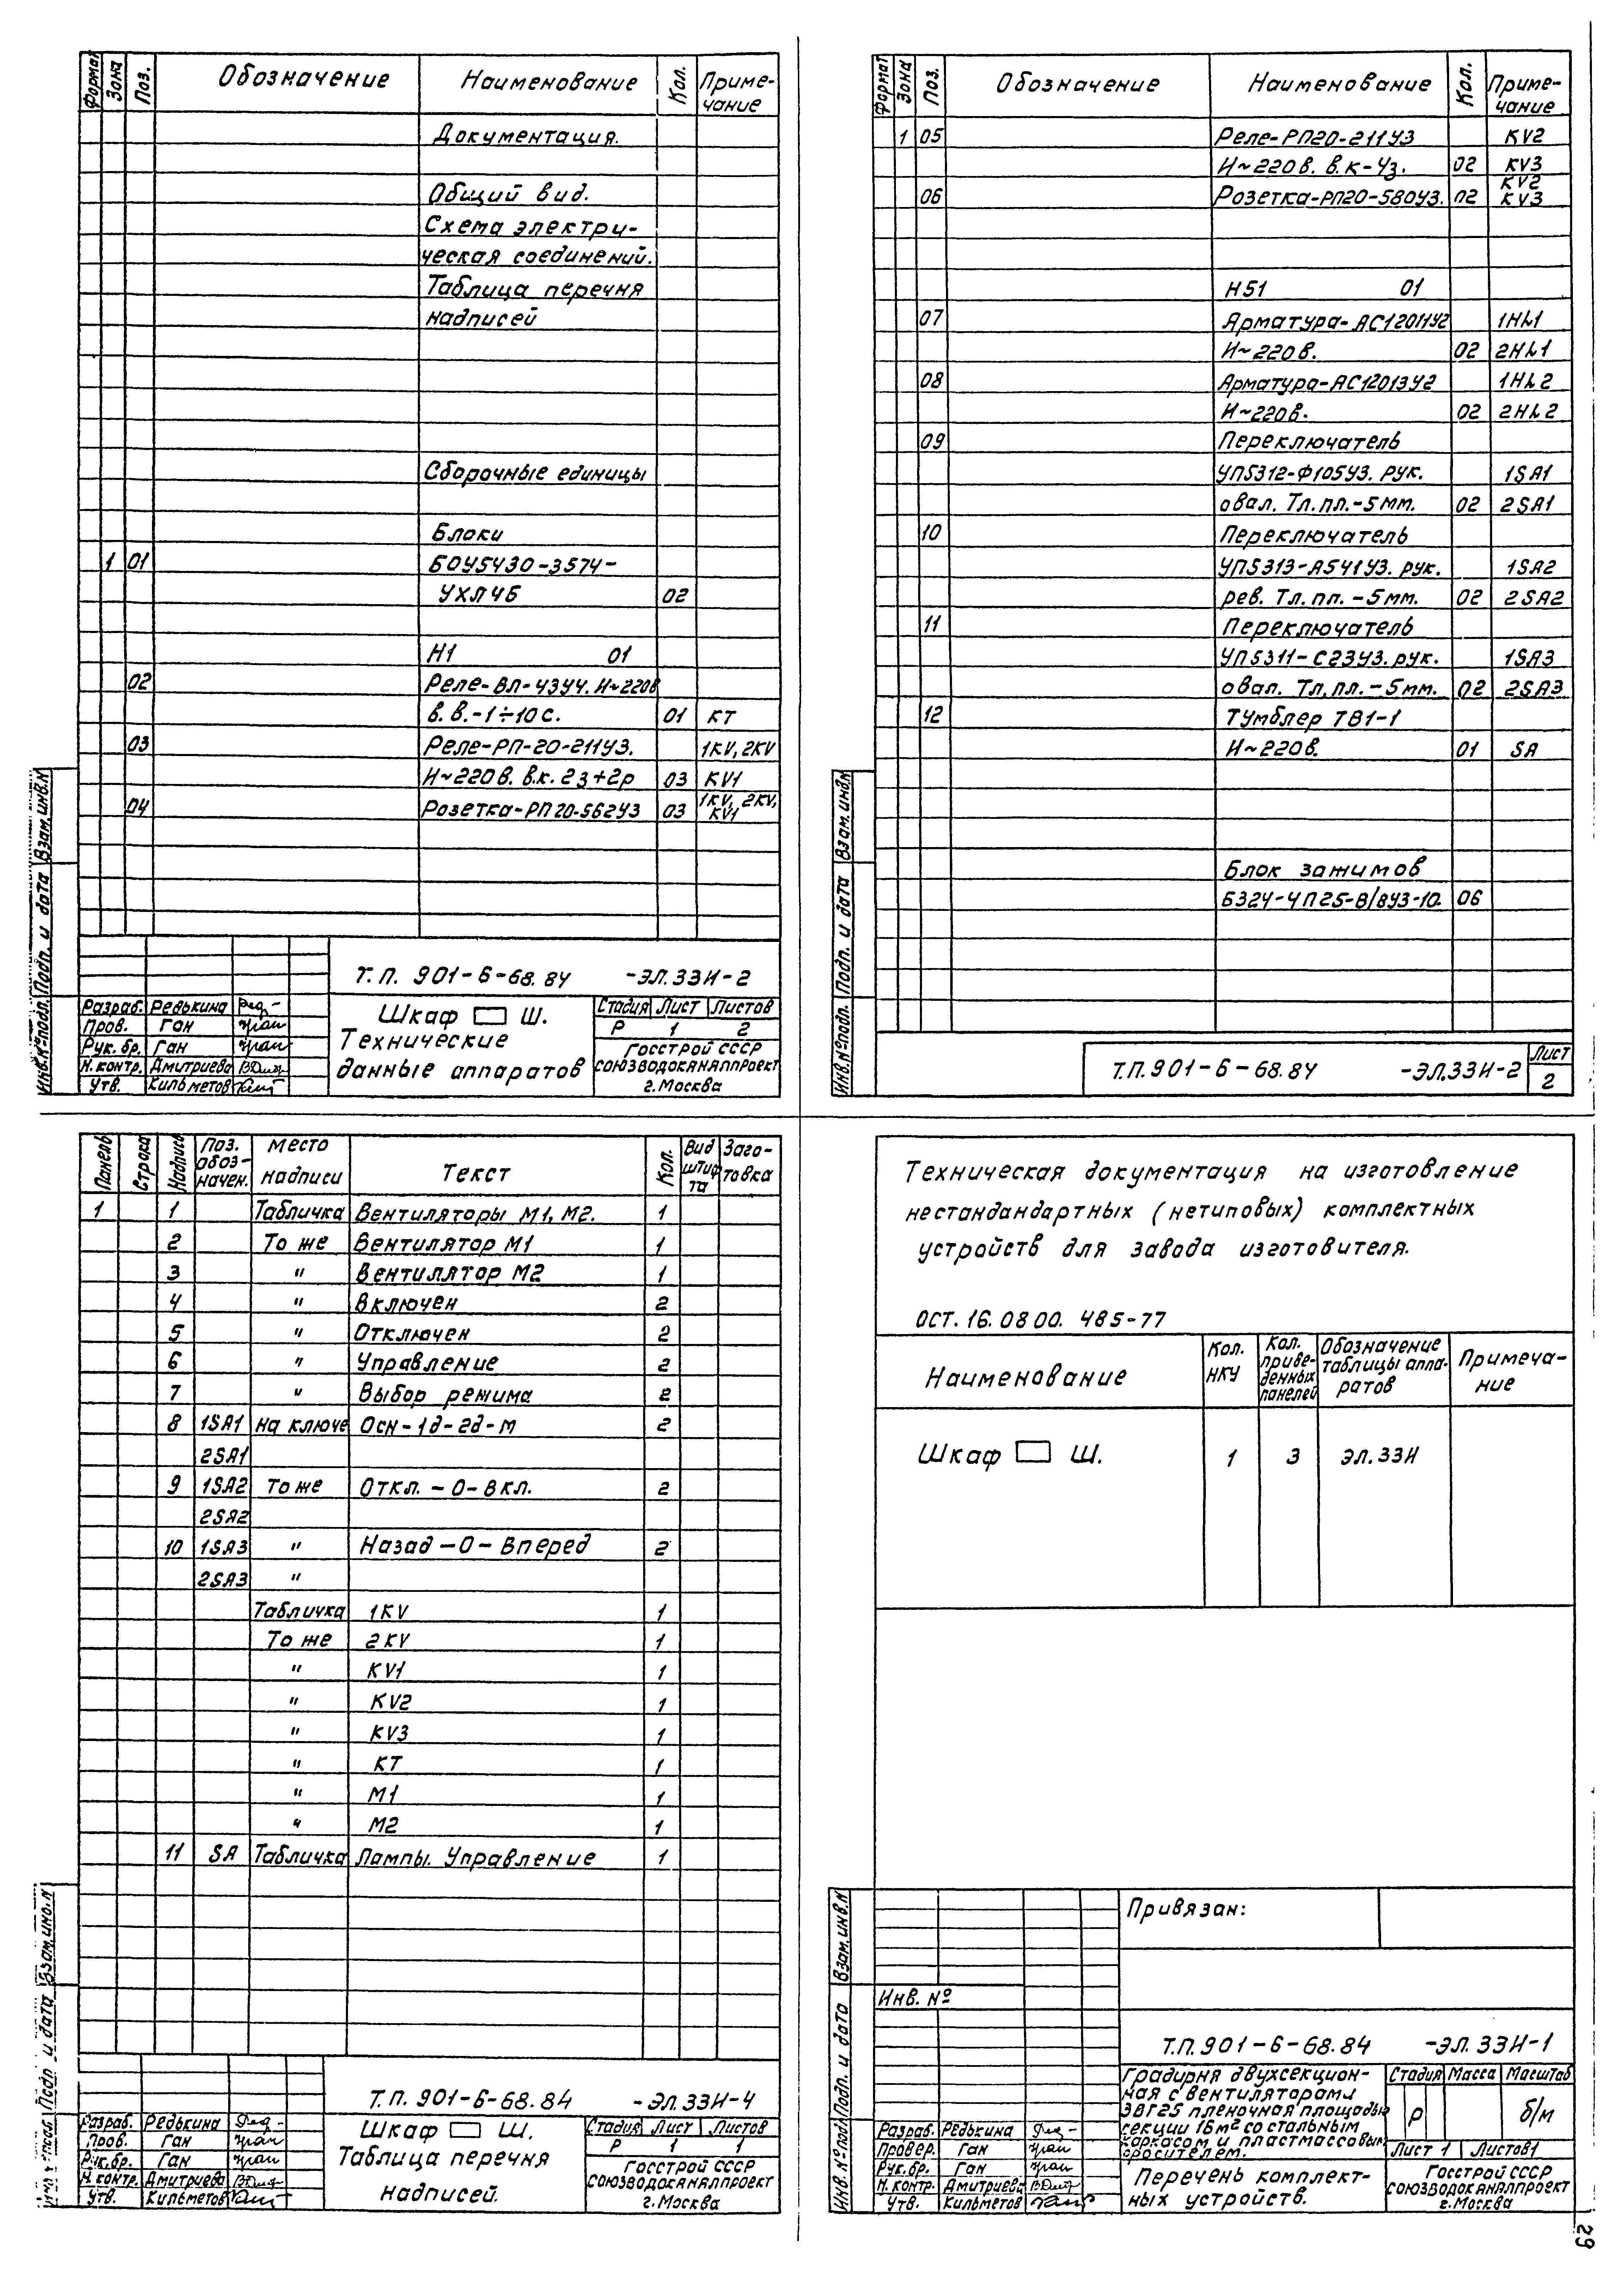 Формат Зона Поз. Обозначение Наименование Кол. Примечание
Документация.
Общий вид.
Схема электри-
ческая соединений.
Таблица перечня
надписей
Сборочные единицы
Блоки
1 01 БОУ5430-3574-
УХЛ4Б 02
Н1 01
02 Реле-ВЛ-43У4. И~220в
в. в.-1÷10 с. 01 КТ
03 Реле-РП-20-211У3. 1KV, 2KV
И~220 в. в.к. 2з+2р 03 KV1
04 Розетка-РП20-562У3 03 1KV, 2KV, KV1
Взам. инв. №
Подп. и дата
Инв. № подл.
Т. П. 901-6-68.84 -ЭЛ.33И-2
Разраб. Редькина
Пров. Ган
Рук. бр. Ган
Н. контр. Дмитриева
Утв. Кильметов
Шкаф Ш.
Технические
данные аппаратов
Стадия Лист Листов
Р 1 2
Госстрой СССР
СОЮЗВОДОКАНАЛПРОЕКТ
г. Москва
Формат Зона Поз. Обозначение Наименование Кол. Приме-
чание
1 05 Реле-РП20-211У3 KV2
И~220в. в. к-4з. 02 KV3
06 Розетка-РП20-580У3. 02 KV2 KV3
Н51 01
07 Арматура-АС12011У2 1HL1
И~220в. 02 2HL1
08 Арматура-АС12013У2 1HL2
И~220в. 02 2HL2
09 Переключатель
УП5312-Ф105У3. рук. 1SA1
овал. Тл. пл.-5мм. 02 2SA1
10 Переключатель
УП5313-А541У3. рук. 1SA2
рев. Тл. пл. -5мм. 02 2SA2
11 Переключатель
УП5311-С23У3. рук. 1SA3
овал. Тл. пл.-5мм. 02 2SA3
12 Тумблер ТВ1-1
И~220в. 01 SA
Блок зажимов
БЗ24-4П25-В/8У3-10. 06
Взам. инв. №
Подп. и дата
Инв. № подл.
Т.П. 901-6-68.84 -ЭЛ.33И-2
Лист
2
Панель Строка Надпись Поз. обоз-
начен. Место
надписи Текст Кол. Вид штиф
та Заго-
товка
1 1 Табличка Вентиляторы М1, М2. 1
2 То же Вентилятор М1 1
3 " Вентилятор М2 1
4 " Включен 2
5 " Отключен 2
6 " Управление 2
7 " Выбор режима 2
8 1SA1 на ключе Осн-1д-2д-м 2
2SA1
9 1SA2 То же Откл. -О-вкл. 2
2SA2
10 1SA3 " Назад-О-вперед 2
2SA3 "
Табличка 1KV 1
То же 2KV 1
" KV1 1
" KV2 1
" KV3 1
" КТ 1
" М1 1
" М2 1
11 SA Табличка Лампы. Управление 1
Взам. инв. №
Подп. и дата
Т. П. 901-6-68.84 -ЭЛ.33И-4
Разраб. Редькина
Пров. Ган
Рук. бр. Ган
Н. контр. Дмитриева
Утв. Кильметов
Шкаф Ш.
Таблица перечня
надписей.
Стадия Лист Листов
Р 1 1
Госстрой СССР
СОЮЗВОДОКАНАЛПРОЕКТ
г. Москва
Техническая документация на изготовление
нестандандартных (нетиповых) комплектных
устройств для завода изготовителя.
ОСТ. 16. 0800. 485-77
Наименование Кол.
НКУ Кол.
приве-
денных
панелей Обозначение
таблицы аппа-
ратов Примеча-
ние
Шкаф Ш. 1 3 ЭЛ.33И
Привязан:
Инв. №
Взам. инв. №
Подп. и дата
Инв. № подл.
Т.П. 901-6-68.84 -ЭЛ. 33И-1
Разраб. Редькина
Провер. Ган
Рук. бр. Ган
Н. контр. Дмитриева
Утв. Кильметов
Градирня двухсекцион-
ная с вентиляторами
3ВГ25 пленочная площадь
секции 16м² со стальным
каркасом и пластмассовым
оросителем.
Перечень комплект-
ных устройств.
Стадия Масса Масштаб
Р б/м
Лист 1 Листов 1
Госстрой СССР
СОЮЗВОДОКАНАЛПРОЕКТ
г. Москва
29